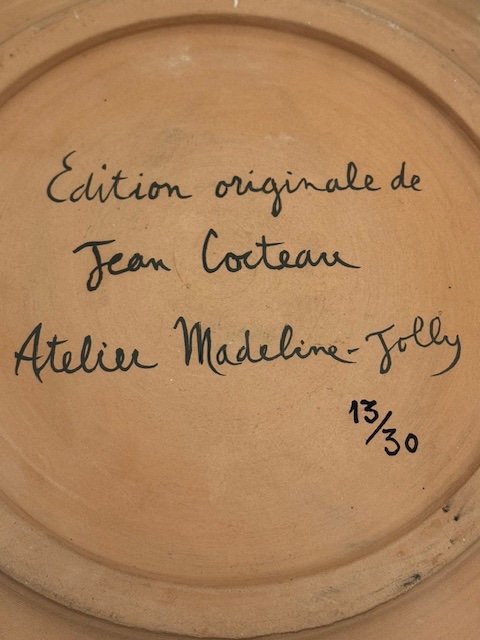 Edition originale de
Jean Cocteau
Atelier Madeline-Jolly
13/30